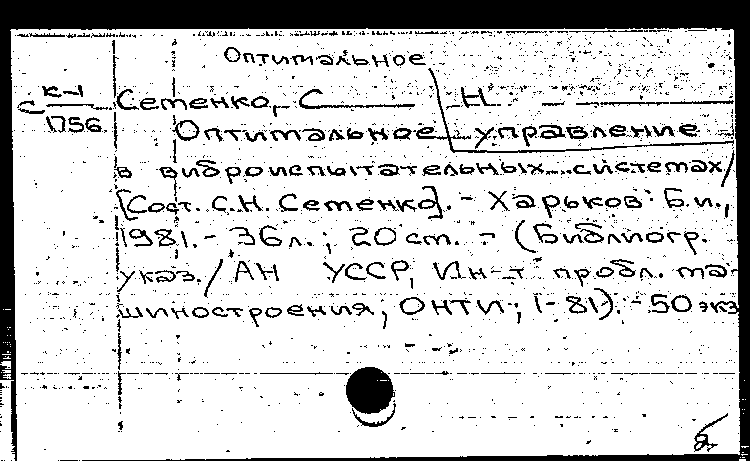 Оптимальное
К-1
С 1756
Сетенко, С Н
Оптимальное управление
в виброиспытательных системах/
[Сост. С.Н. Сетенко]. - Харьков: Б.и.,
1981. - 36 л.; 20 cm. - (Библиогр.
указ./АН УССР, Ин-т пробл. ма-
шиностроения, ОНТИ; 1-81). - 50 экз